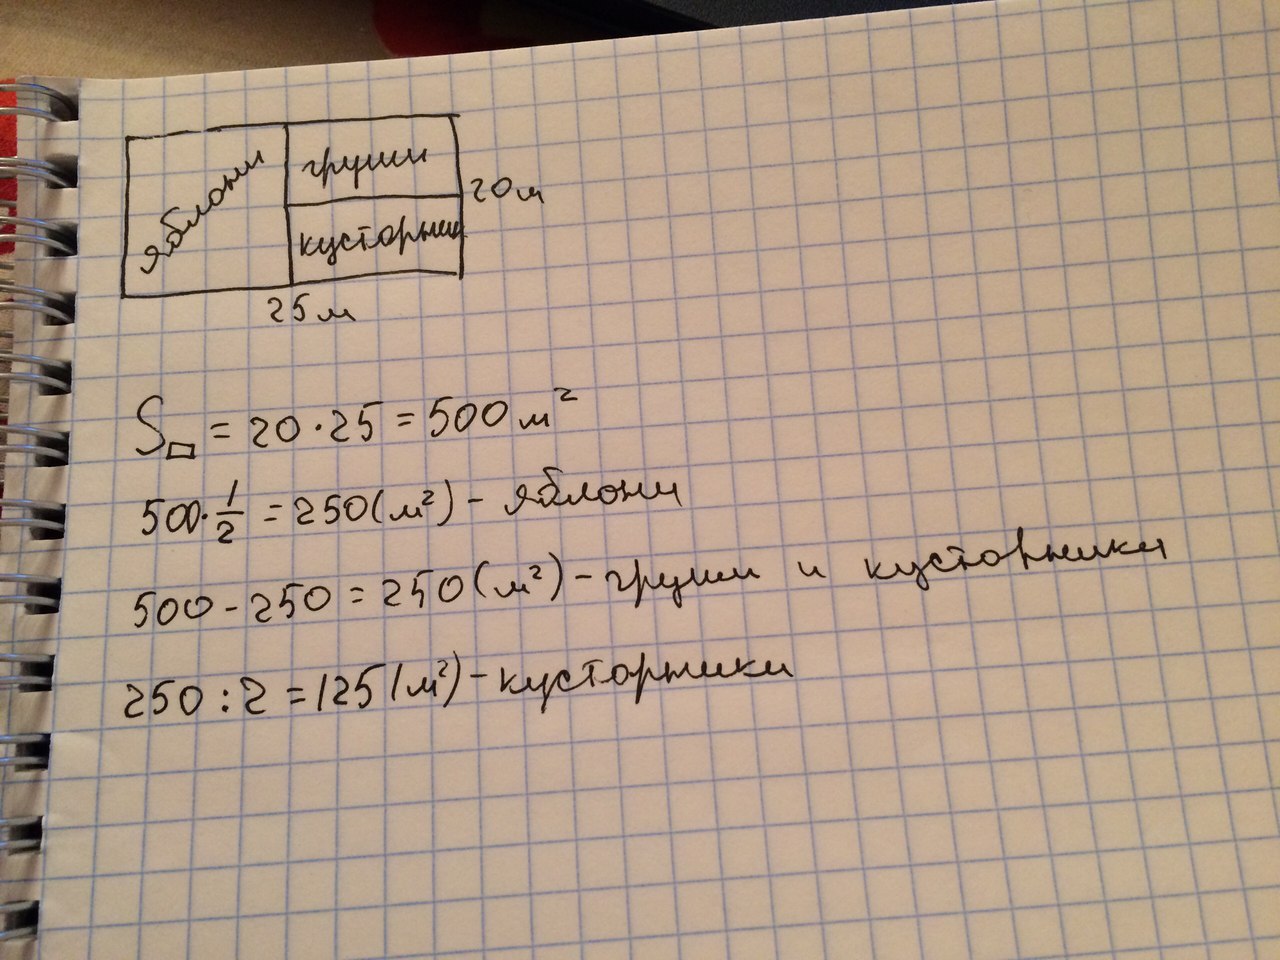 яблони
груши
20 м
кусторник
25 м
S▭ = 20 · 25 = 500 м²
500 · 1/2 = 250 (м²) - яблони
500 - 250 = 250 (м²) - груши и кусторники
250 : 2 = 125 (м²) - кусторники